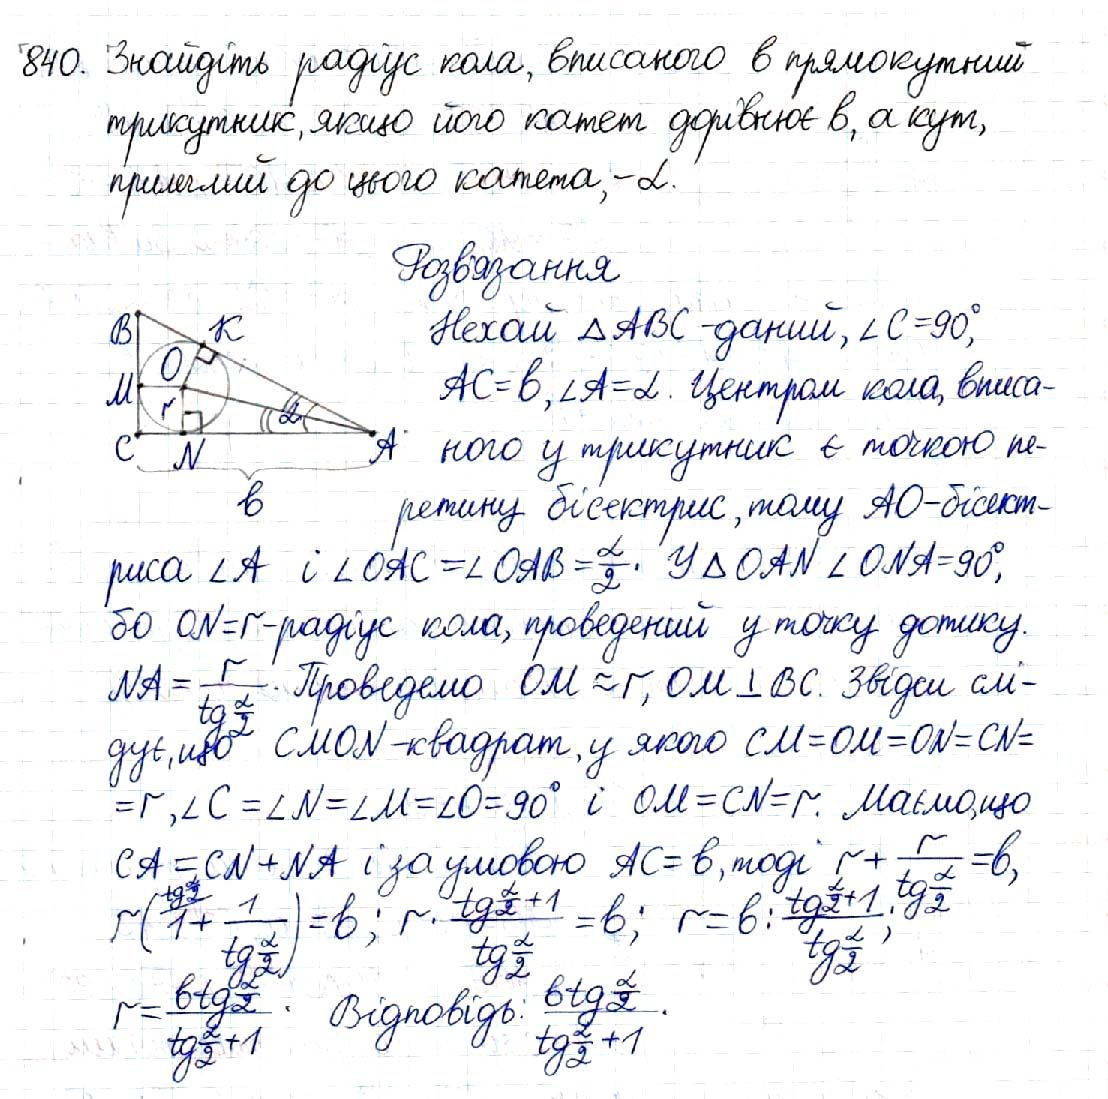 840. Знайдіть радіус кола, вписаного в прямокутний
трикутник, якщо його катет дорівнює b, а кут,
прилеглий до цього катета, - α.
Розв'язання
B K
O
M r α
C N A
b
Нехай △ABC - даний, ∠C = 90°,
AC = b, ∠A = α. Центром кола, вписа-
ного у трикутник є точкою пе-
ретину бісектрис, тому AO - бісект-
риса ∠A і ∠OAC = ∠OAB = α/2. У △OAN ∠ONA = 90°,
бо ON = r - радіус кола, проведений у точку дотику.
NA = r/tg α/2. Проведемо OM ≈ r, OM ⊥ BC. Звідси слі-
дує, що CMON - квадрат, у якого CM = OM = ON = CN =
= r, ∠C = ∠N = ∠M = ∠O = 90° і OM = CN = r. Маємо, що
CA = CN + NA і за умовою AC = b, тоді r + r/tg α/2 = b,
r(1 tg α/2 + 1/tg α/2) = b; r · (tg α/2 + 1)/tg α/2 = b; r = b : (tg α/2 + 1)/tg α/2;
r = b tg α/2/(tg α/2 + 1). Відповідь: b tg α/2/(tg α/2 + 1).